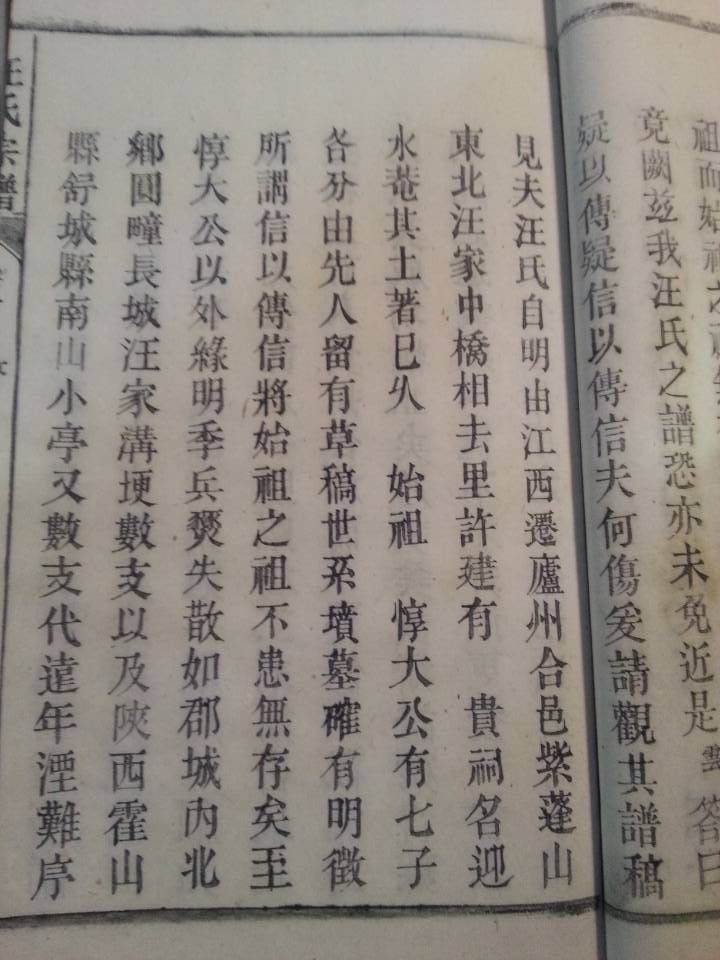 竟闕茲我汪氏之譜恐亦未免近是 答曰
疑以傳疑信以傳信夫何傷爰請觀其譜稿
見夫汪氏自明由江西遷廬州合邑紫蓬山
東北汪家中橋相去里許建有 貴祠名迎
水菴其土著已久 始祖 惇大公有七子
各分由先人留有草稿世系墳墓確有明徵
所謂信以傳信將始祖之祖不患無存矣至
惇大公以外緣明季兵燹失散如郡城內北
鄉圓疃長城汪家溝埂數支以及陝西霍山
縣舒城縣南山小亭又數支代遠年湮難序
汪氏宗譜